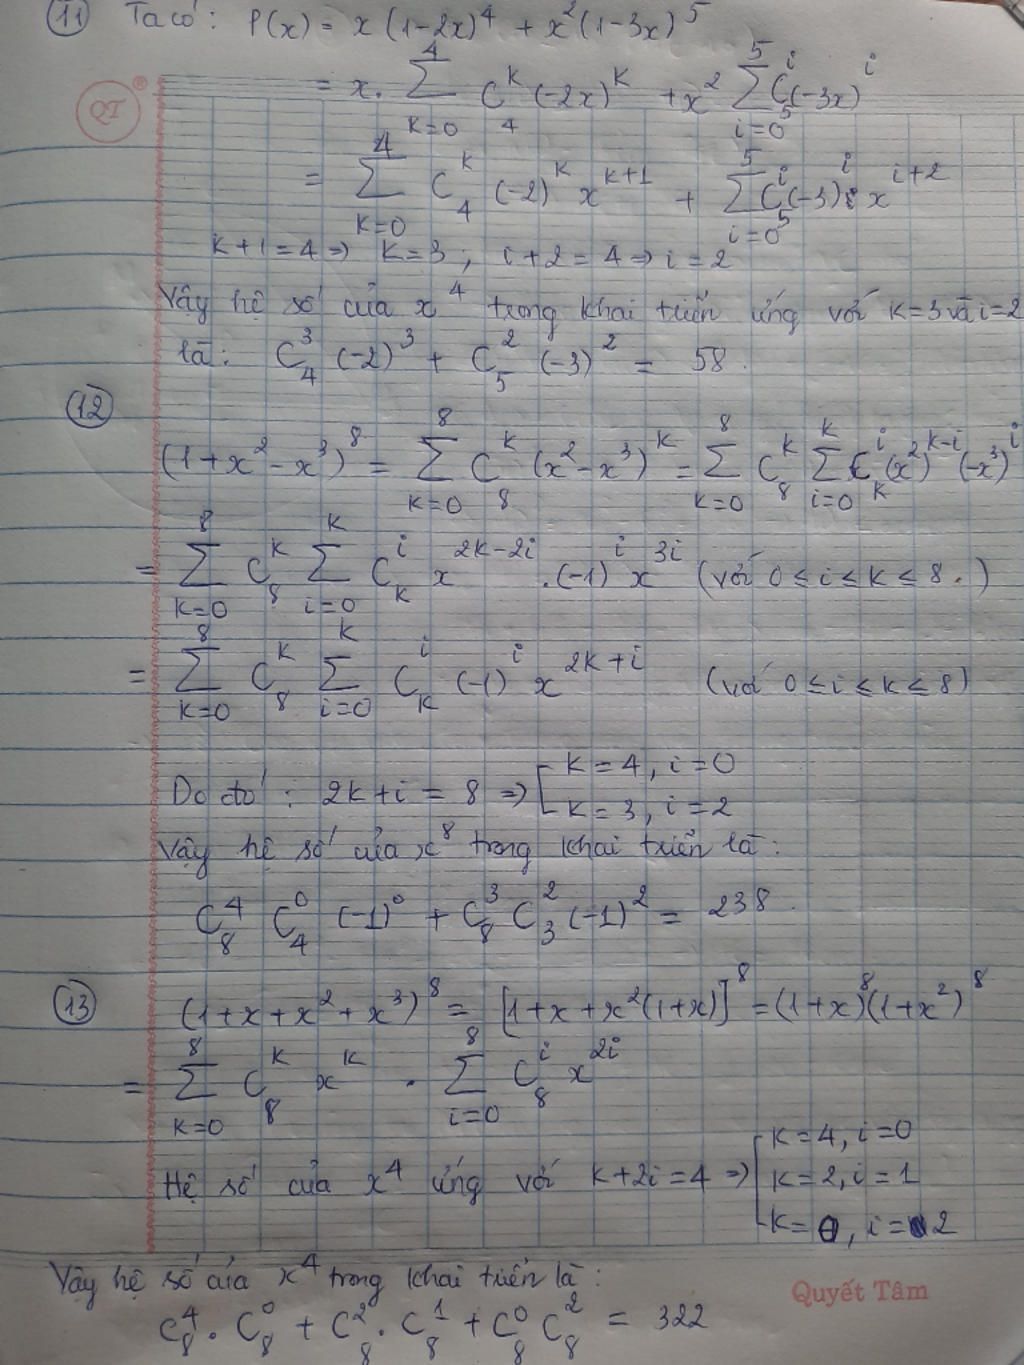 (11) Ta có: P(x) = x(1-2x)^4 + x^2(1-3x)^5
QT ®
= x. \sum_{k=0}^{4} C_4^k (-2x)^k + x^2 \sum_{i=0}^{5} C_5^i (-3x)^i
= \sum_{k=0}^{4} C_4^k (-2)^k x^{k+1} + \sum_{i=0}^{5} C_5^i (-3)^i x^{i+2}
k+1=4 ⇒ k=3 ; i+2=4 ⇒ i=2
Vậy hệ số của x^4 trong khai triển ứng với k=3 và i=2
là: C_4^3 (-2)^3 + C_5^2 (-3)^2 = 58.
(12)
(1+x^2-x^3)^8 = \sum_{k=0}^{8} C_8^k (x^2-x^3)^k = \sum_{k=0}^{8} C_8^k \sum_{i=0}^{k} C_k^i (x^2)^{k-i} (-x^3)^i
= \sum_{k=0}^{8} C_8^k \sum_{i=0}^{k} C_k^i x^{2k-2i} .(-1)^i x^{3i} (với 0 ≤ i ≤ k ≤ 8.)
= \sum_{k=0}^{8} C_8^k \sum_{i=0}^{k} C_k^i (-1)^i x^{2k+i} (với 0 ≤ i ≤ k ≤ 8)
k=4, i=0
Do đó: 2k+i = 8 ⇒ [
k=3, i=2
Vậy hệ số của x^8 trong khai triển là:
C_8^4 C_4^0 (-1)^0 + C_8^3 C_3^2 (-1)^2 = 238.
(13) (1+x+x^2+x^3)^8 = [1+x+x^2(1+x)]^8 = (1+x)^8(1+x^2)^8
= \sum_{k=0}^{8} C_8^k x^k . \sum_{i=0}^{8} C_8^i x^{2i}
k=4, i=0
Hệ số của x^4 ứng với k+2i=4 ⇒ [ k=2, i=1
k=0, i=2
Vậy hệ số của x^4 trong khai triển là:
Quyết Tâm
C_8^4 . C_8^0 + C_8^2 . C_8^1 + C_8^0 C_8^2 = 322